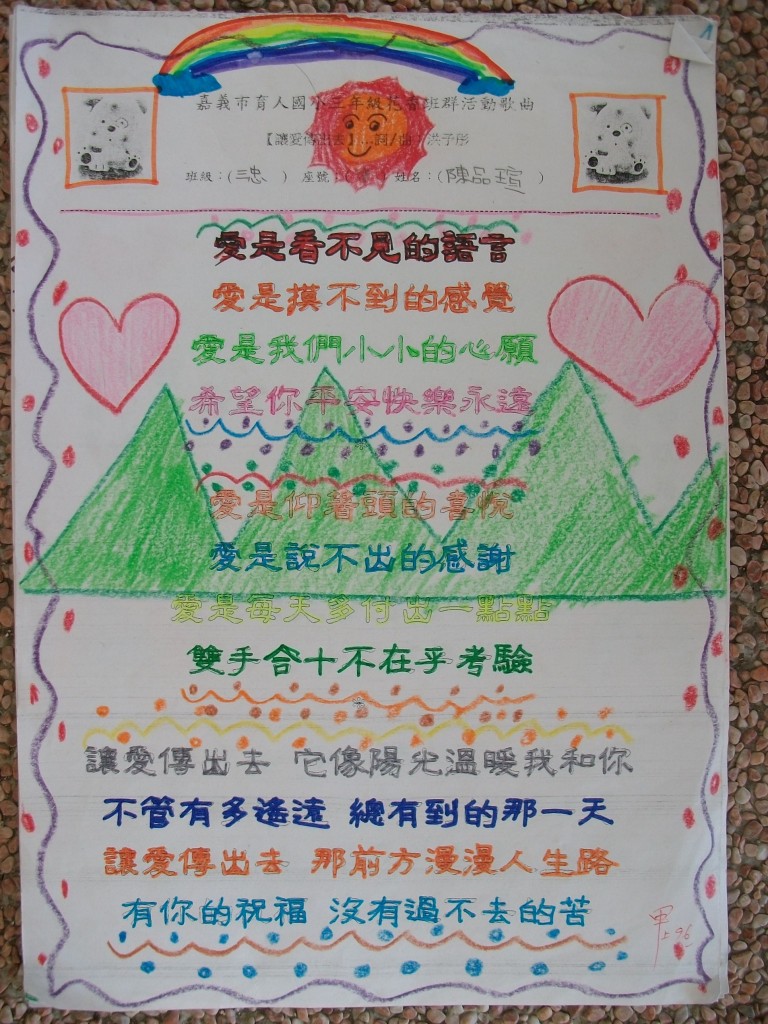 嘉義市育人國小三年級忠孝班群活動歌曲
【讓愛傳出去】...詞/曲 洪子彤
班級：(三忠 ) 座號：( ) 姓名：(陳品瑄 )
愛是看不見的語言
愛是摸不到的感覺
愛是我們小小的心願
希望你平安快樂永遠
愛是仰著頭的喜悅
愛是說不出的感謝
愛是每天多付出一點點
雙手合十不在乎考驗
讓愛傳出去 它像陽光溫暖我和你
不管有多遙遠 總有到的那一天
讓愛傳出去 那前方漫漫人生路
有你的祝福 沒有過不去的苦